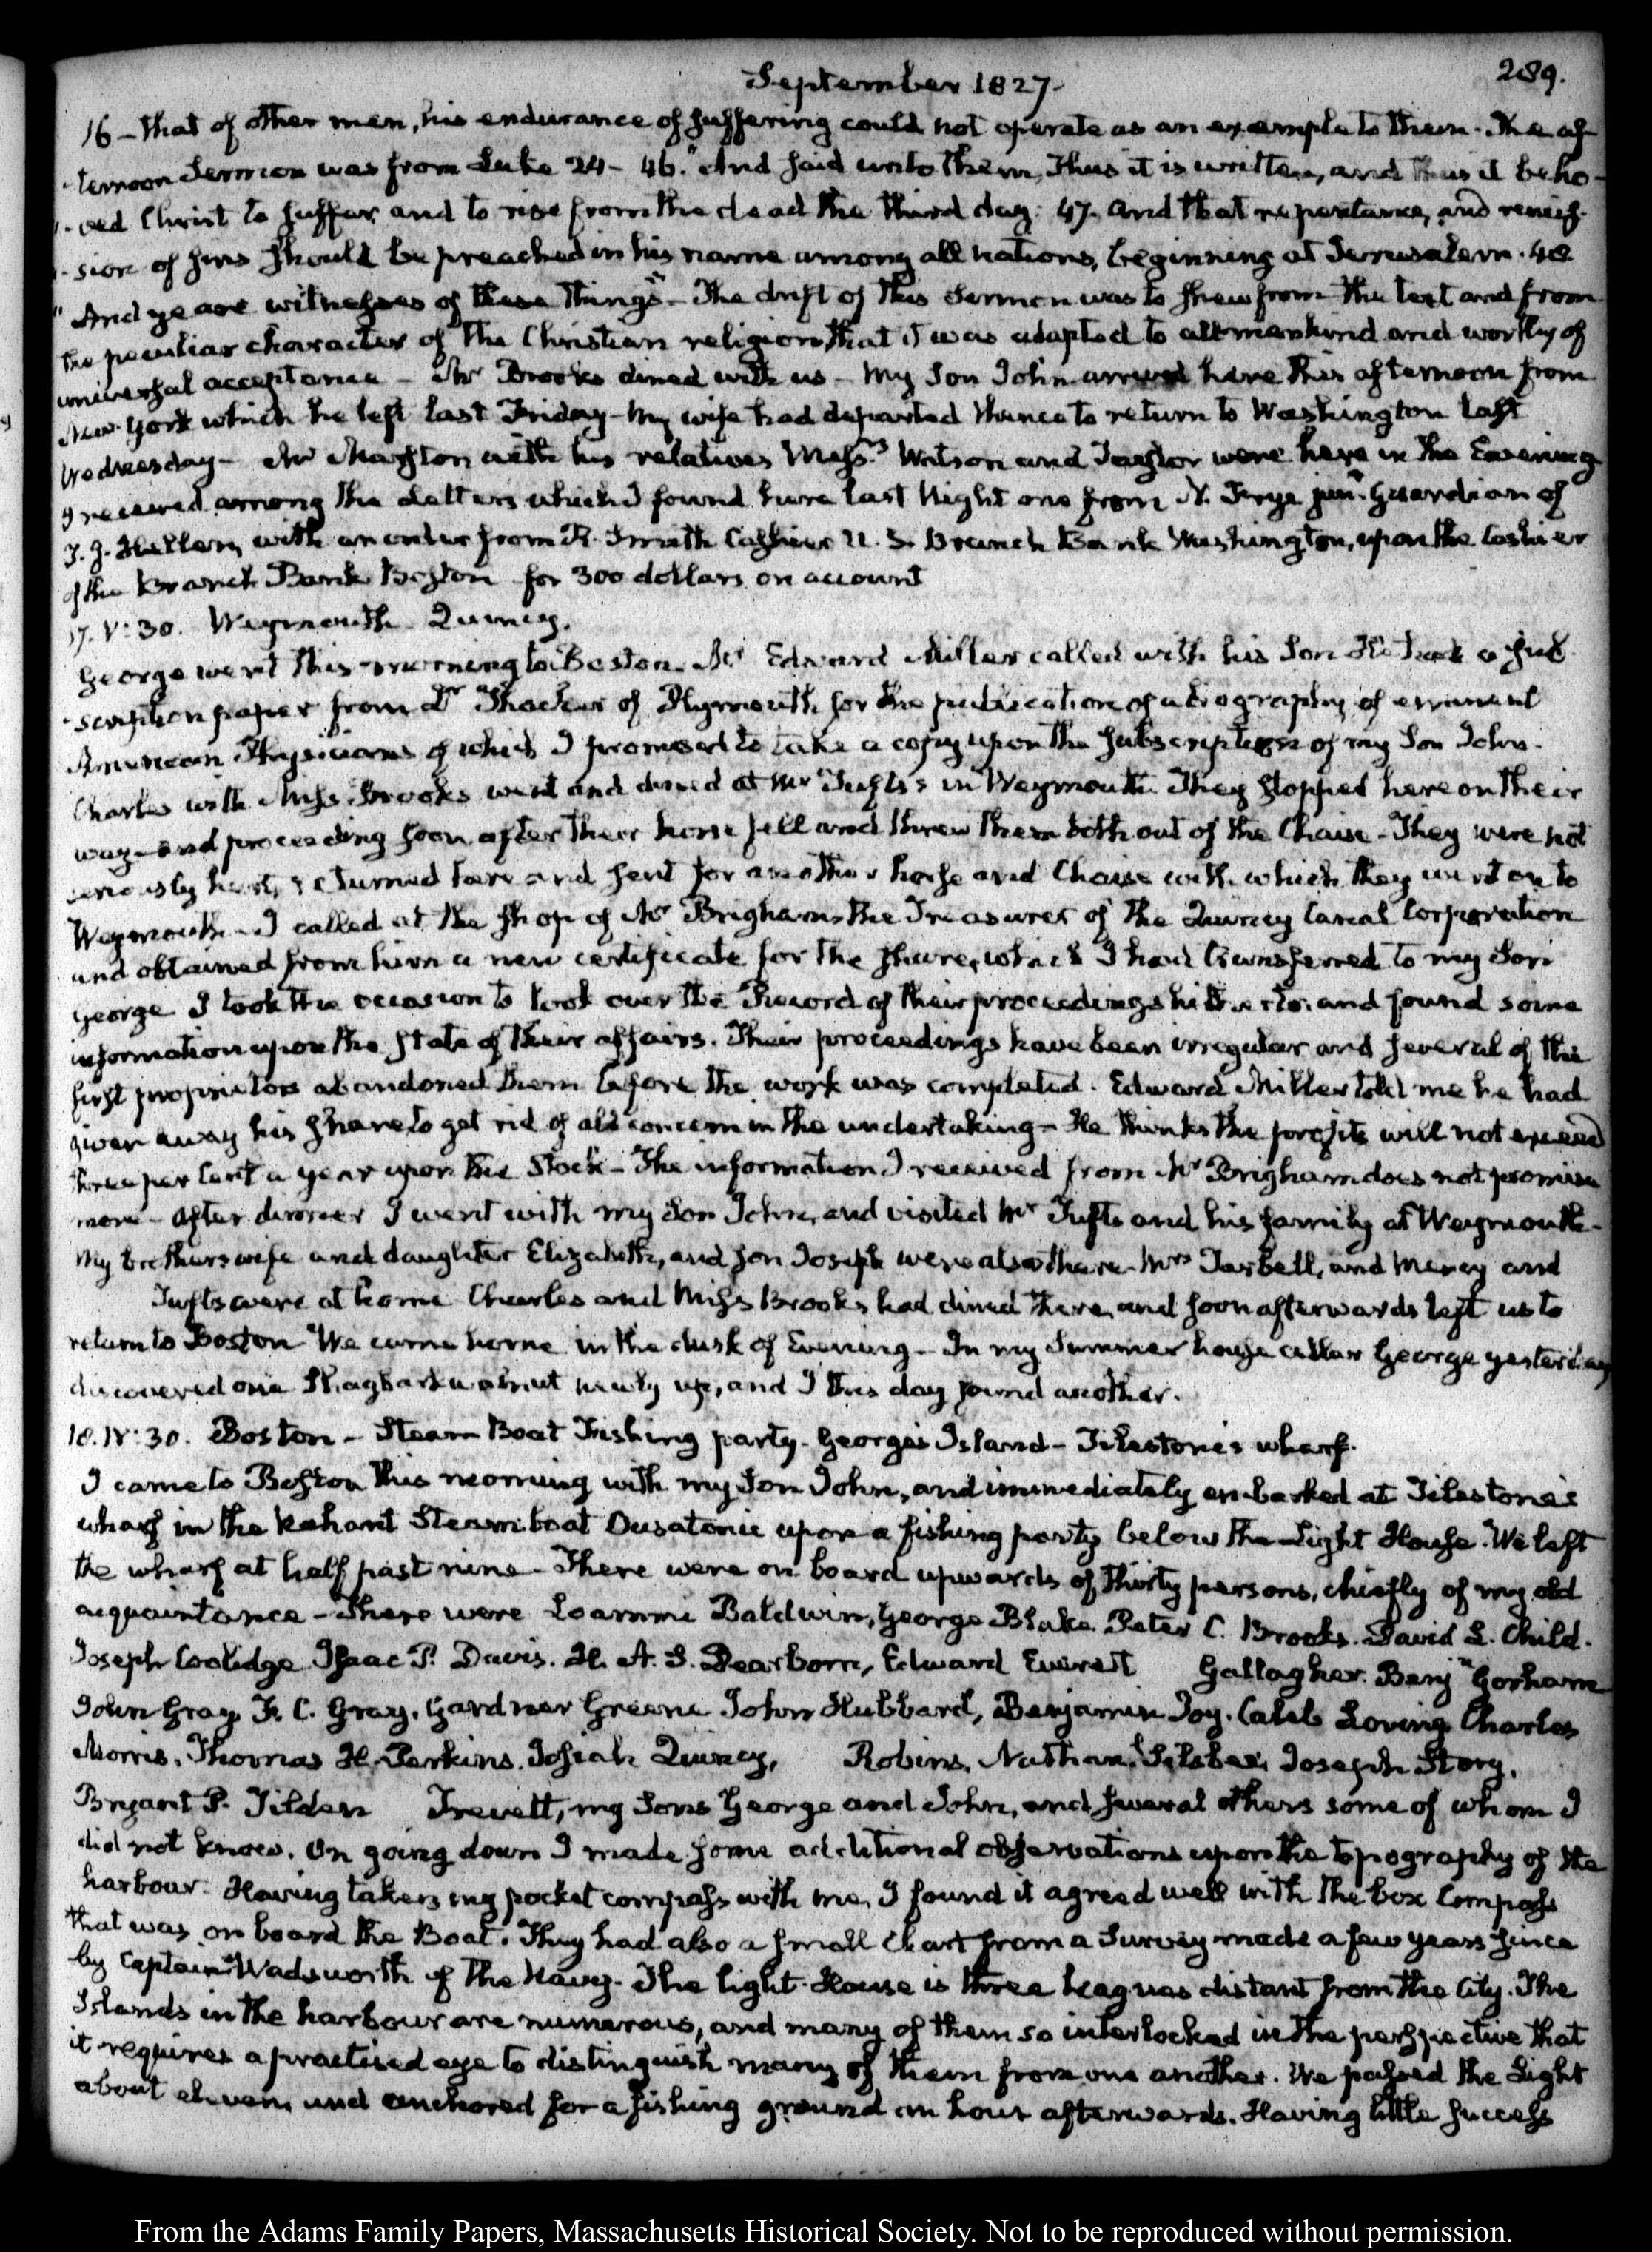 September 1827.
289.
16 - that of other men, his endurance of suffering could not operate as an example to them. The af-
-ternoon Sermon was from Luke 24 - 46. "And said unto them, Thus it is written, and thus it beho-
"-ved Christ to suffer and to rise from the dead the third day: 47. And that repentance, and remis-
"-sion of sins should be preached in his name among all nations, beginning at Jerusalem. 48
"And ye are witnesses of these things" - The drift of this Sermon was to shew from the text and from
the peculiar character of the Christian religion that it was adapted to all mankind and worthy of
universal acceptance - Mr Brooks dined with us - My Son John arrived here this afternoon from
New-York which he left last Friday - My wife had departed thence to return to Washington last
Wednesday - Mr Marston with his relatives Messrs Watson and Taylor were here in the Evening
I received among the Letters which I found here last Night one from N. Frye junr. Guardian of
J. J. Hellen, with an order from R. Smith Cashier U. S. Branch Bank Washington, upon the Cashier
of the Branch Bank Boston for 300 dollars on account
17. V:30. Weymouth. Quincy.
George went this morning to Boston. Mr Edward Miller called with his Son He took a sub-
-scription paper from Dr Thacher of Plymouth for the publication of a biography of eminent
American Physicians of which I promised to take a copy upon the subscription of my Son John.
Charles with Miss Brooks went and dined at Mr Tufts's in Weymouth. They stopped here on their
way - and proceeding soon after their horse fell and threw them both out of the Chaise - They were not
seriously hurt, returned here and sent for another horse and Chaise with which they went on to
Weymouth - I called at the shop of Mr Brigham, the Treasurer of the Quincy Canal Corporation
and obtained from him a new certificate for the share, which I had transferred to my Son
George I took the occasion to look over the Record of their proceedings hitherto, and found some
information upon the state of their affairs. Their proceedings have been irregular and several of the
first proprietors abandoned them before the work was completed. Edward Miller told me he had
given away his share to get rid of all concern in the undertaking - He thinks the profits will not exceed
three per Cent a year upon the Stock - The information I received from Mr Brigham does not promise
more - After dinner I went with my Son John, and visited Mr Tufts and his family at Weymouth -
My brothers wife and daughter Elizabeth, and son Joseph were also there. Mrs Tarbell, and Mercy and
Tufts were at home Charles and Miss Brooks had dined there, and soon afterwards left us to
return to Boston We came home in the dusk of Evening - In my Summer house cellar George yesterday
discovered one Shagbark walnut newly up, and I this day found another.
18. IV:30. Boston - Steam Boat Fishing party - George's Island - Tilestone's wharf.
I came to Boston this morning with my Son John, and immediately embarked at Tilestone's
wharf in the Nahant Steam boat Ousatonic upon a fishing party below the Light House. We left
the wharf at half past nine - There were on board upwards of thirty persons, chiefly of my old
acquaintance - There were Loammi Baldwin, George Blake. Peter C. Brooks. David L. Child.
Joseph Coolidge. Isaac P. Davis. H. A. S. Dearborn, Edward Everett Gallagher. Benjn Gorham
John Gray. F. C. Gray. Gardner Greene John Hubbard, Benjamin Joy. Caleb Loring. Charles
Morris. Thomas H. Perkins. Josiah Quincy, Robins, Nathanl Silsbee, Joseph Story.
Bryant P. Tilden Trevett, my Sons George and John, and several others some of whom I
did not know. On going down I made some additional observations upon the topography of the
harbour. Having taken my pocket compass with me, I found it agreed well with the box Compass
that was on board the Boat. They had also a small Chart from a Survey made a few years since
by Captain Wadsworth of the Navy. The light-House is three leagues distant from the City. The
Islands in the harbour are numerous, and many of them so interlocked in the perspective that
it requires a practised eye to distinguish many of them from one another. We passed the Light
about eleven, and anchored for a fishing ground an hour afterwards. Having little success
From the Adams Family Papers, Massachusetts Historical Society. Not to be reproduced without permission.